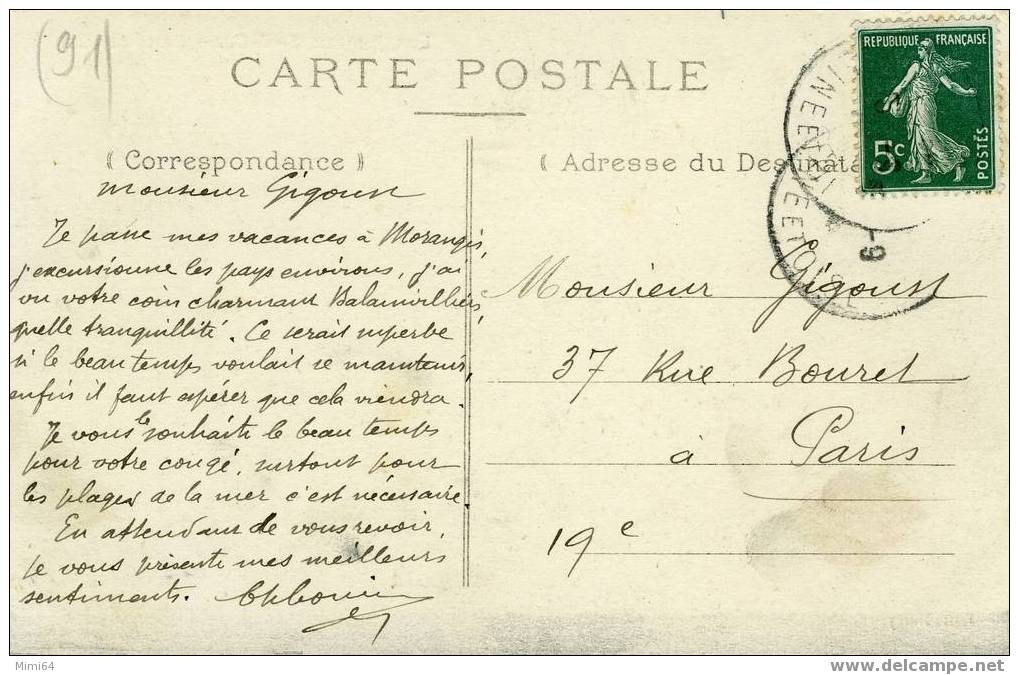 (91)
CARTE POSTALE
REPUBLIQUE FRANÇAISE
5c
POSTES
( Correspondance )
( Adresse du Destinata
Monsieur Gigoust
Je passe mes vacances à Morangis,
j'excursionne les pays environs, j'ai
vu votre coin charmant Balainvilliers,
quelle tranquillité. Ce serait superbe
si le beau temps voulait se maintenir,
enfin il faut espérer que cela viendra.
Je vous le souhaite le beau temps
pour votre congé, surtout pour
les plages de la mer c'est nécessaire.
En attendant de vous revoir,
je vous présente mes meilleurs
sentiments.
Monsieur Gigoust
37 Rue Bouret
à Paris
19e
SEINE ET OISE
-9
Mimi64
delcampe.net